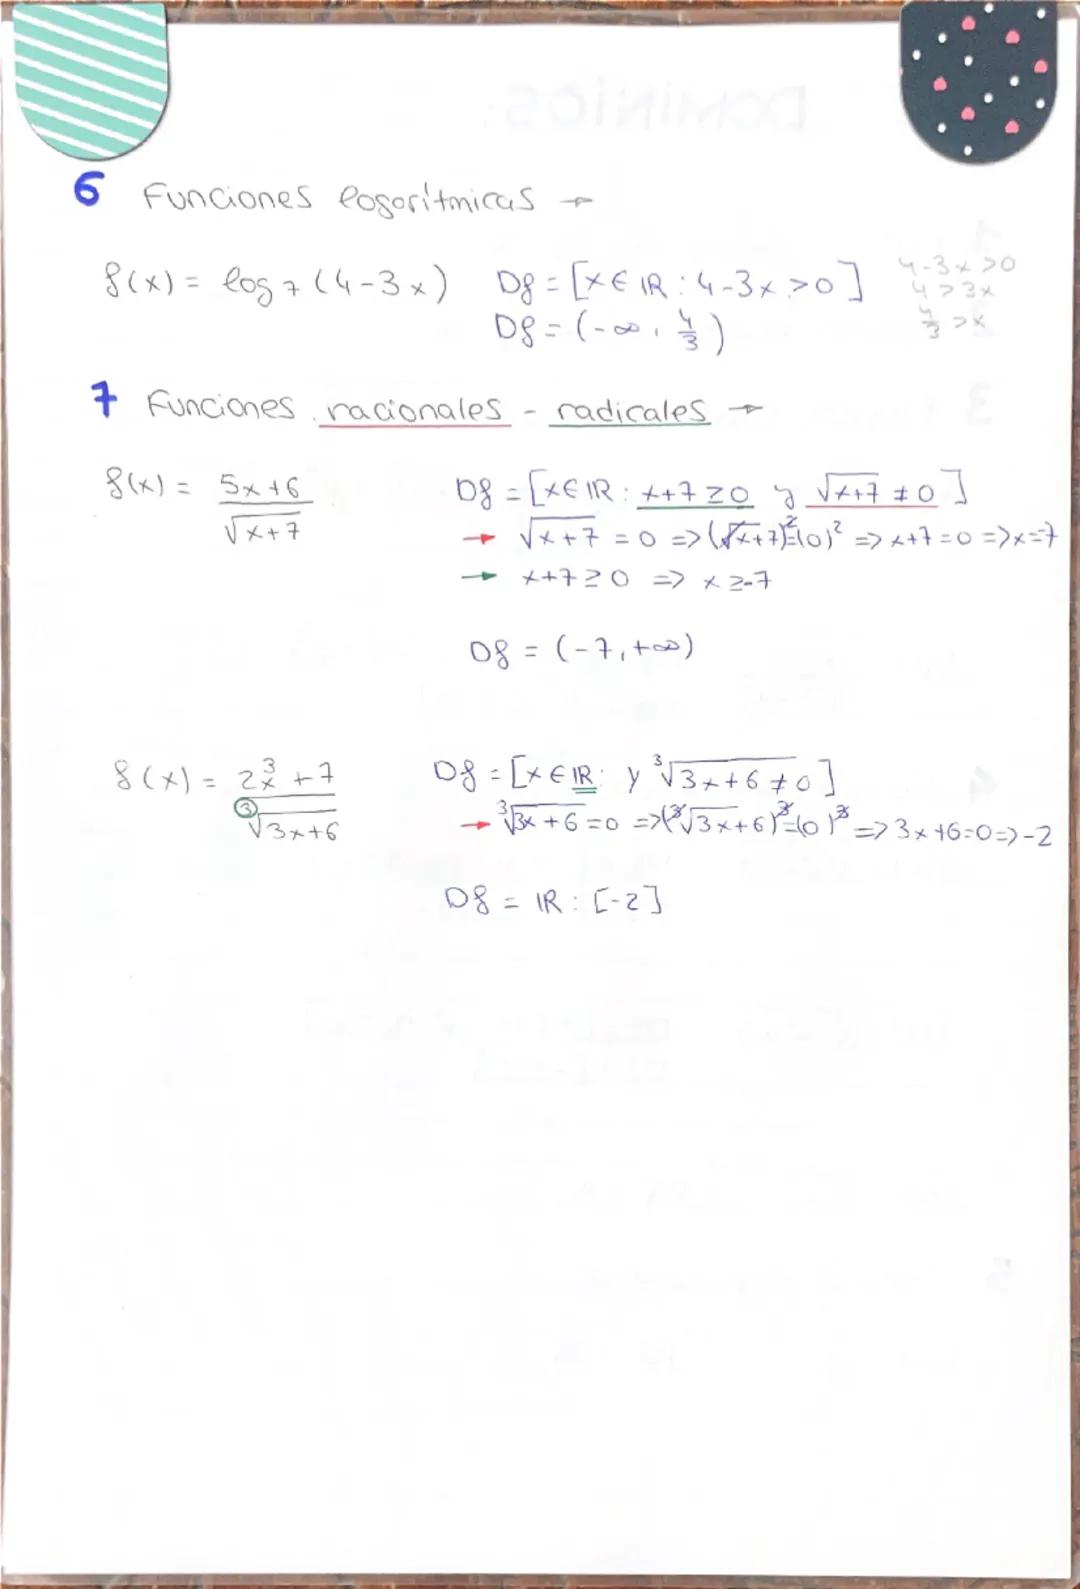 DOMINIOS:
6 Funciones logarítmicas →
f(x) = log 7 (4-3x) Df = [x ∈ IR : 4-3x > 0] 4-3x > 0
4 > 3x
Df = (-∞, 4/3) 4/3 > x
7 Funciones racionales - radicales →
f(x) = 5x+6 / √x+7 Df = [x ∈ IR : x+7 ≥ 0 y √x+7 ≠ 0]
→ √x+7 = 0 => (√x+7)² = (0)² => x+7 = 0 => x = -7
→ x+7 ≥ 0 => x ≥ -7
Df = (-7, +∞)
f(x) = 2x³ + 7 / ³√3x+6 Df = [x ∈ IR: y ³√3x+6 ≠ 0]
→ ³√3x+6 = 0 => (³√3x+6)³ = (0)³ => 3x+6=0 => -2
Df = IR : [-2]